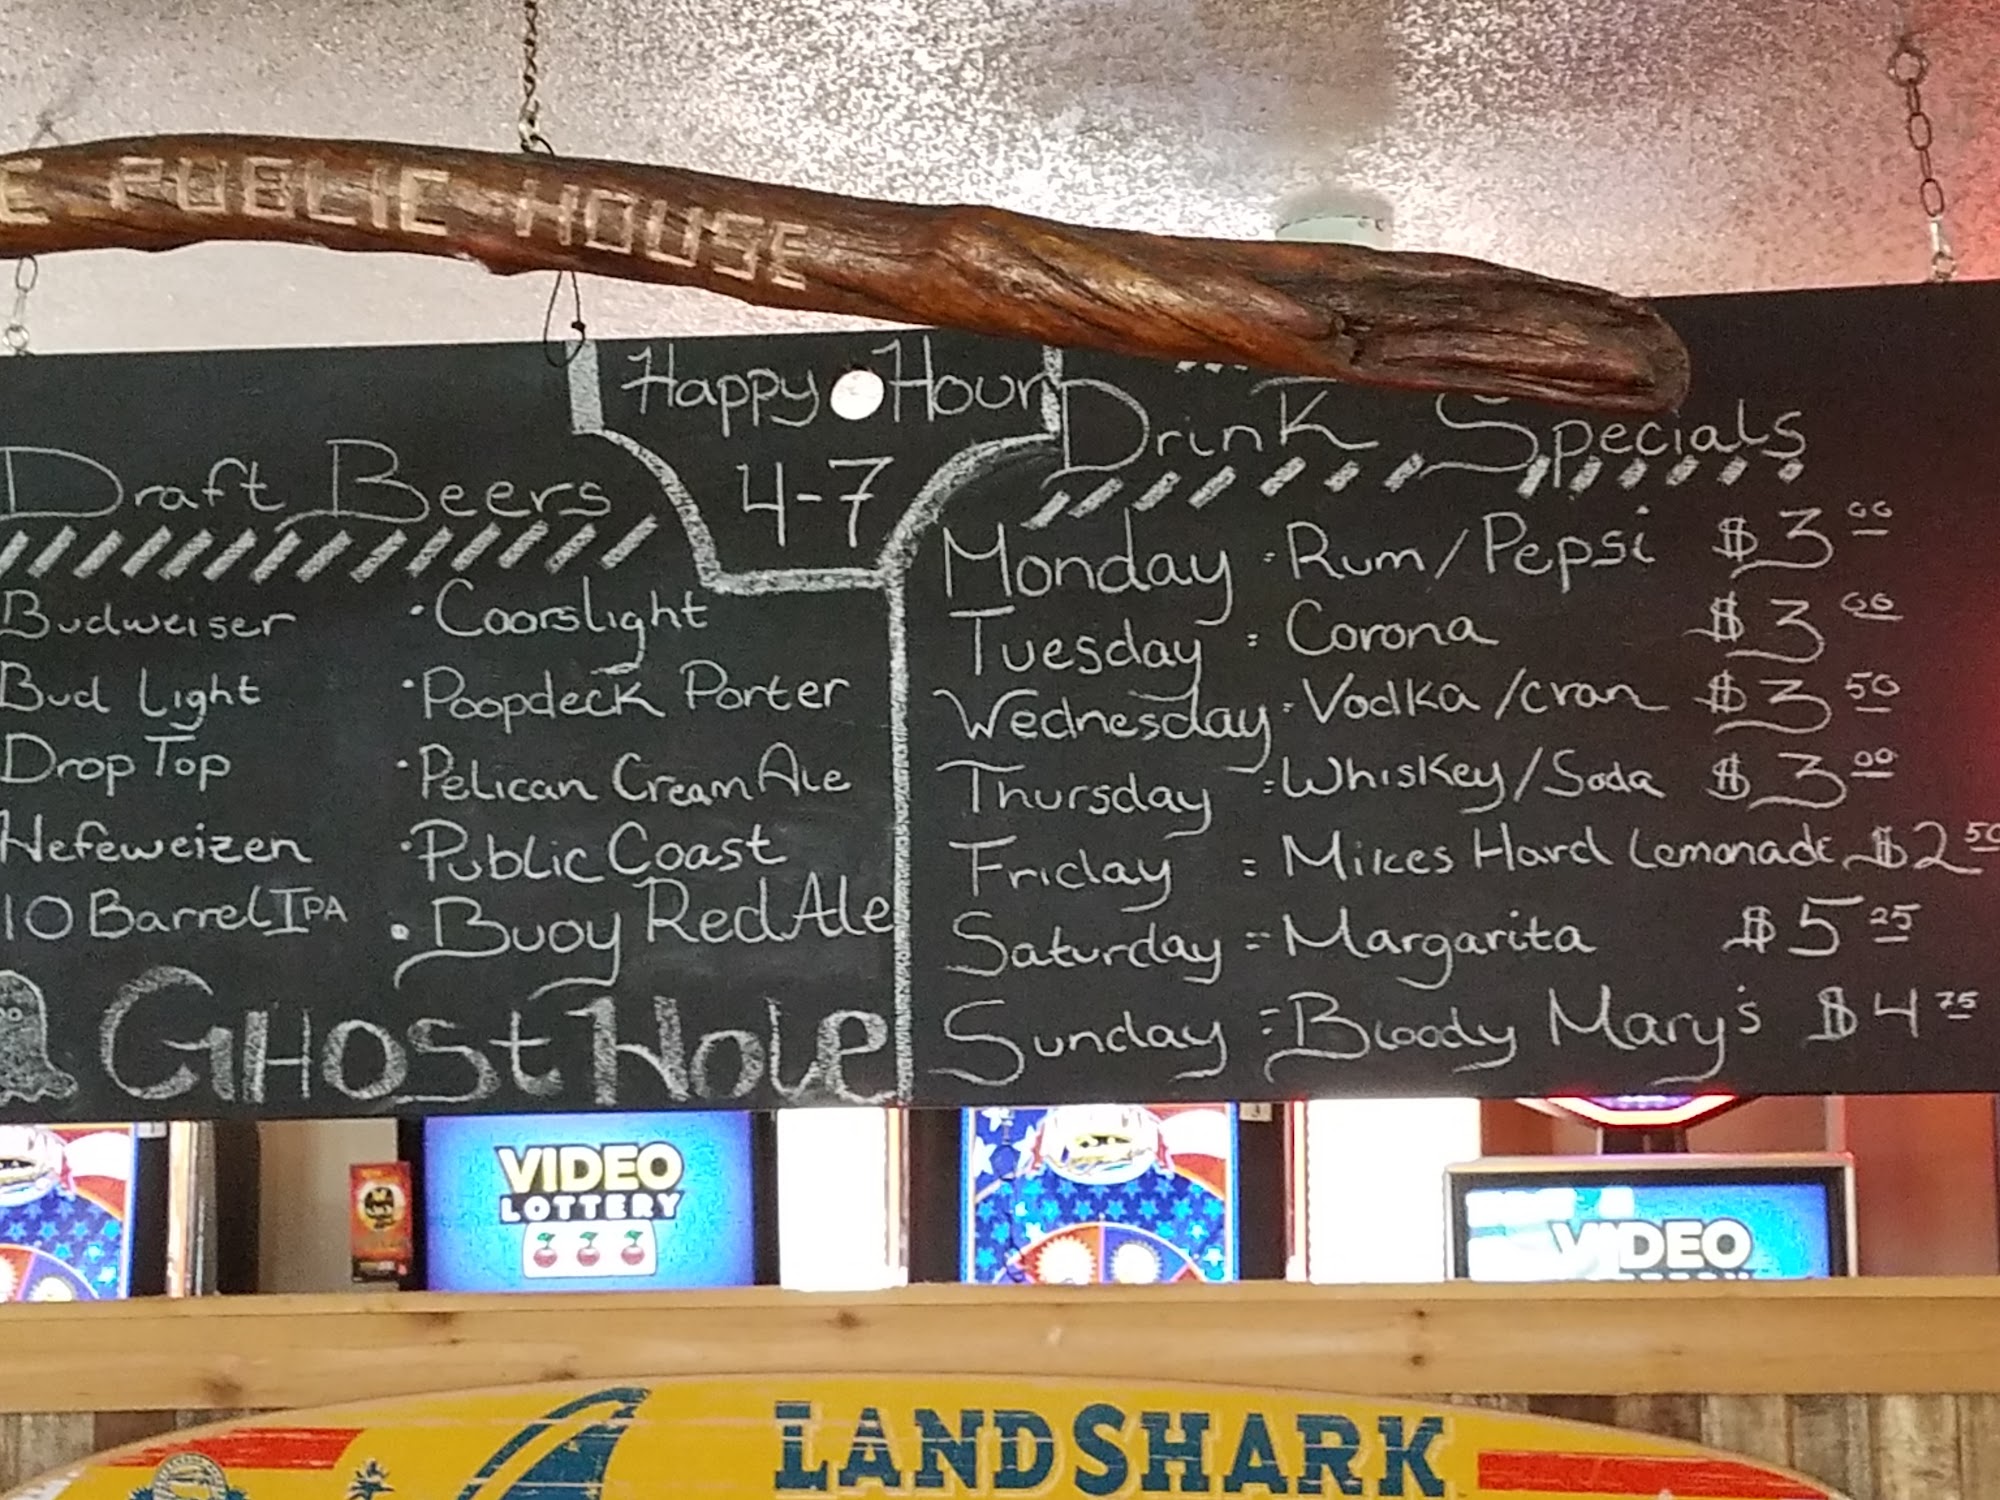 E PUBLIC HOUSE
Happy Hour
4-7
Draft Beers
Budweiser
Bud Light
Drop Top
Hefeweizen
10 Barrel IPA
• Coorslight
• Poopdeck Porter
• Pelican Cream Ale
• Public Coast
• Buoy Red Ale
GHOSt Hole
Drink Specials
Monday : Rum/Pepsi $3 00
Tuesday : Corona $3 00
Wednesday : Vodka/cran $3 50
Thursday : Whiskey/Soda $3 00
Friday : Mikes Hard Lemonade $2 50
Saturday : Margarita $5 25
Sunday : Bloody Mary's $4 75
VIDEO
LOTTERY
VIDEO
LANDSHARK